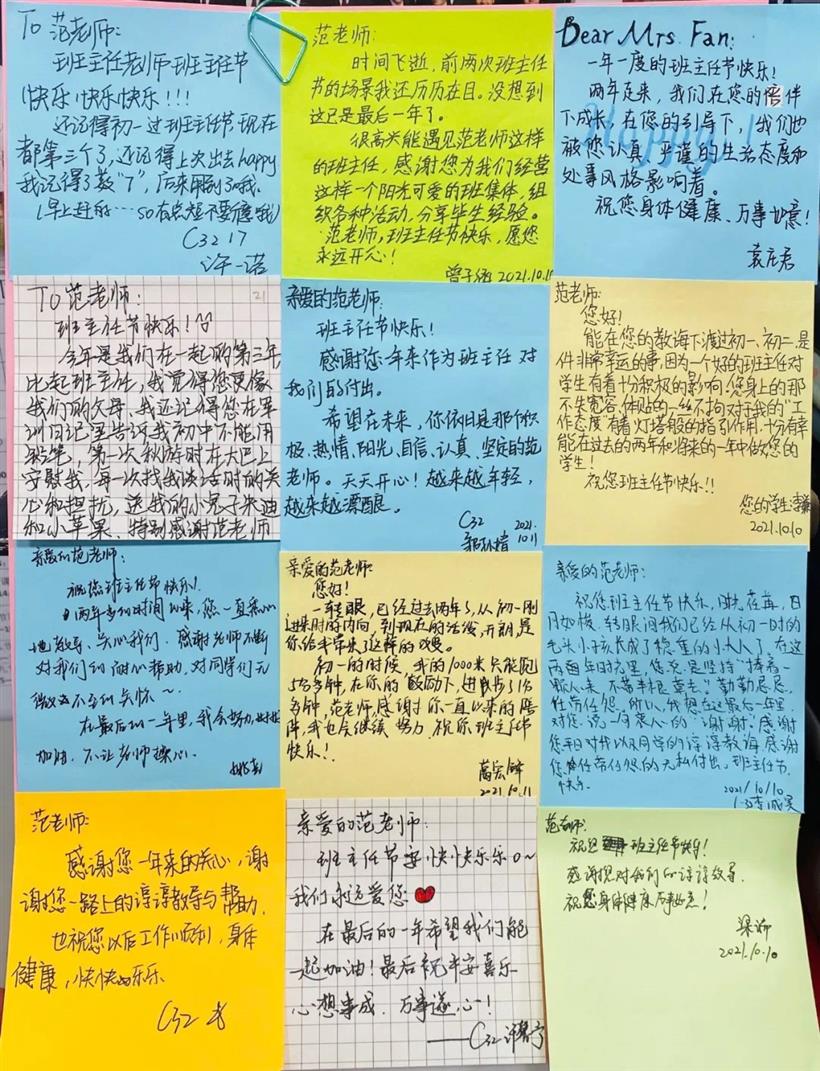 To 范老师:
班主任老师班主任节
快乐快乐快乐!!!
还记得初一过班主任节,现在
都第三个了,还记得上次出去happy
我记得了数"7",后来
(早上赶的……so有点短不要
C32 17
许一诺
范老师:
时间飞逝,前两次班主任
节的场景我还历历在目。没想到
这已是最后一年了。
很高兴能遇见范老师这样
的班主任,感谢您为我们经营
这样一个阳光可爱的班集体,组
织各种活动,分享毕生经验。
范老师,班主任节快乐,愿您
永远开心!
曾子 2021.10.11
Dear Mrs. Fan:
一年一度的班主任节快乐!
两年走来,我们在您的陪伴
下成长,在您的引导下,我们也
被您认真、严谨的生活态度和
处事风格影响着。
祝您身体健康、万事如意!
Happy!
袁
To 范老师:
21
班主任节快乐!
今年是我们在一起的第三年
比起班主任,我觉得您更像
我们的父母,我还记得您在军
训日记里告诉我初中不能用
铅笔,第一次秋游时在大巴上
安慰我,每一次找我谈话时的关
心和担忧,送我的小兔子朱迪
和小苹果,特别感谢范老师
亲爱的范老师:
班主任节快乐!
感谢您一年来作为班主任对
我们的付出。
希望在未来,你依旧是那个积
极、热情、阳光、自信、认真、坚定的范
老师。天天开心!越来越年轻,
越来越漂靓。
C32 2021.
10.11
范老师:
您好!
能在您的教诲下渡过初一、初二,是
件非常幸运的事,因为一个好的班主任对
学生有着十分积极的影响。您身上的那
不失宽容、体贴的一丝不拘对于我的"工
作态度"有着灯塔般的指引作用,十分有幸
能在过去的两年和将来的一年中做您的
学生!
祝您班主任节快乐!!
您的学生:李
2021.10.10
亲爱的范老师:
祝您班主任节快乐!
两年多的时间以来,您一直耐心
地教导、关心我们。感谢老师不断
对我们的耐心帮助,对同学们无
微不至的关怀~
在最后的一年里,我会努力,
加油,不让老师操心.
亲爱的范老师:
您好!
一转眼,已经过去两年了,从初一刚
进来时的内向,到现在的活泼、开朗是
你给我带来这样的改变。
初一的时候,我的1000米只能跑
5分多钟,在你的鼓励下,进步了1分
多钟,范老师,感谢你一直以来的陪
伴,我也会继续努力,祝你班主任节
快乐!
葛宏
2021.10.11
亲爱的范老师:
祝您班主任节快乐,时光荏苒,日
月如梭,转眼间我们已经从初一时的
毛头小孩长成了稳重的小大人了,在这
两年时光里,您总是坚持"捧着一
颗心来,不带半根草去",勤勤恳恳,
任劳任怨。所以,我想在这最后一年里
对您说一句衷心的"谢谢",感谢
您平日对我以及同学的谆谆教诲,感谢
您任劳任怨的无私付出,班主任节
快乐.
2021/10/10
范老师:
感谢您一年来的关心,谢
谢您一路上的谆谆教导与帮助.
也祝您以后工作顺利,身体
健康,快快乐乐
C32
亲爱的范老师:
班主任节要快快乐乐O~
我们永远爱您
在最后的一年希望我们能
一起加油!最后祝平安喜乐
心想事成、万事遂心!
——C32 许
范老师:
祝您班主任节快乐!
感谢您对我们的谆谆教导.
祝您身体健康万事如意!
梁
2021.10.10